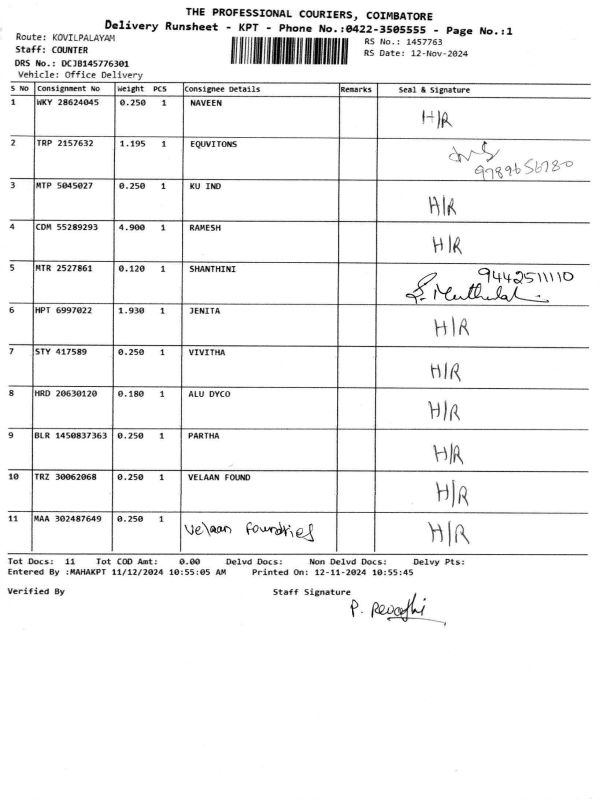 THE PROFESSIONAL COURIERS, COIMBATORE
Delivery Runsheet - KPT - Phone No.:0422-3505555 - Page No.:1
Route: KOVILPALAYAM
RS No.: 1457763
Staff: COUNTER
RS Date: 12-Nov-2024
DRS No.: DCJB145776301
Vehicle: Office Delivery
S No Consignment No Weight PCS Consignee Details Remarks Seal & Signature
1 WKY 28624045 0.250 1 NAVEEN H/R
2 TRP 2157632 1.195 1 EQUVITONS
9789656780
3 MTP 5045027 0.250 1 KU IND H/R
4 CDM 55289293 4.900 1 RAMESH H/R
5 MTR 2527861 0.120 1 SHANTHINI 9442511110
6 HPT 6997022 1.930 1 JENITA H/R
7 STY 417589 0.250 1 VIVITHA H/R
8 HRD 20630120 0.180 1 ALU DYCO H/R
9 BLR 1450837363 0.250 1 PARTHA H/R
10 TRZ 30062068 0.250 1 VELAAN FOUND H/R
11 MAA 302487649 0.250 1 Velaan Foundries H/R
Tot Docs: 11 Tot COD Amt: 0.00 Delvd Docs: Non Delvd Docs: Delvy Pts:
Entered By :MAHAKPT 11/12/2024 10:55:05 AM Printed On: 12-11-2024 10:55:45
Verified By Staff Signature
P.